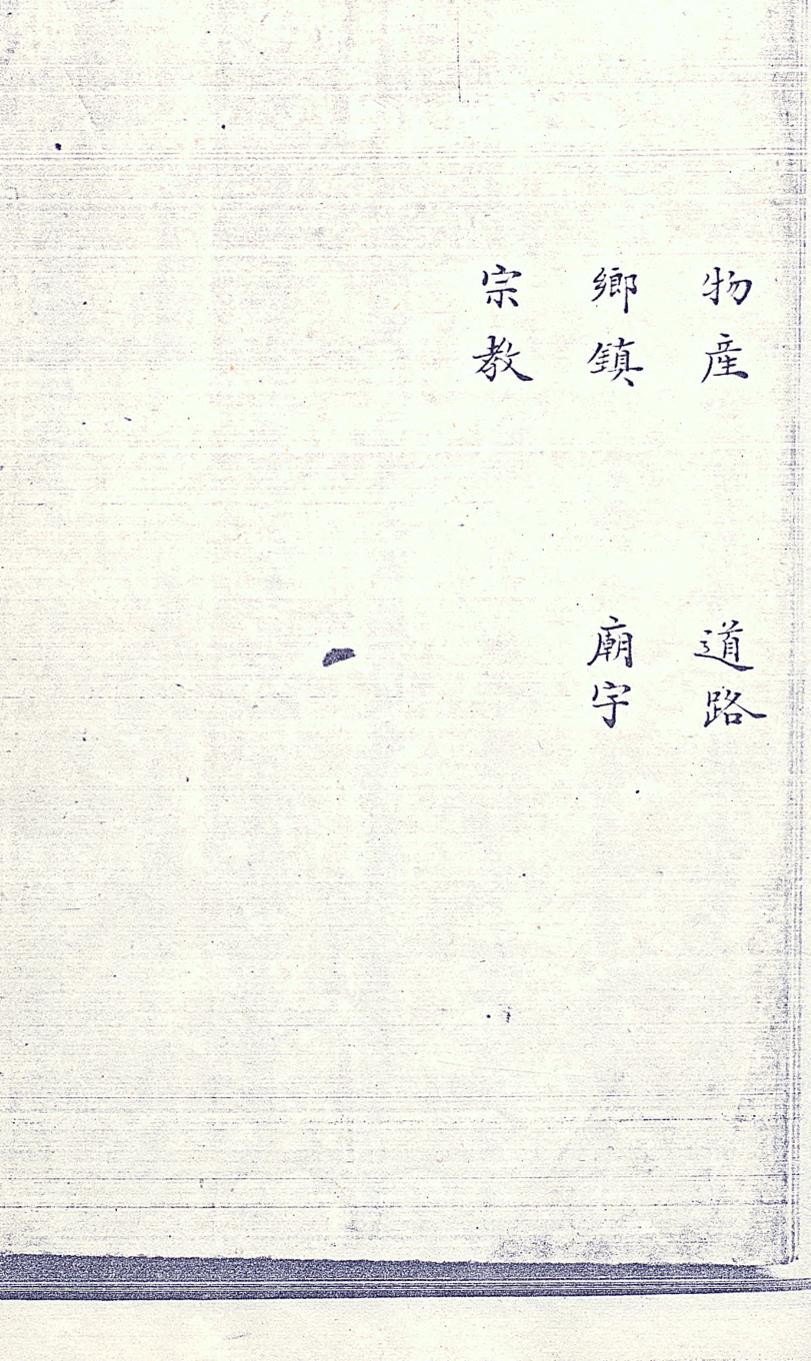 物産　道路
鄉鎮　廟宇
宗教